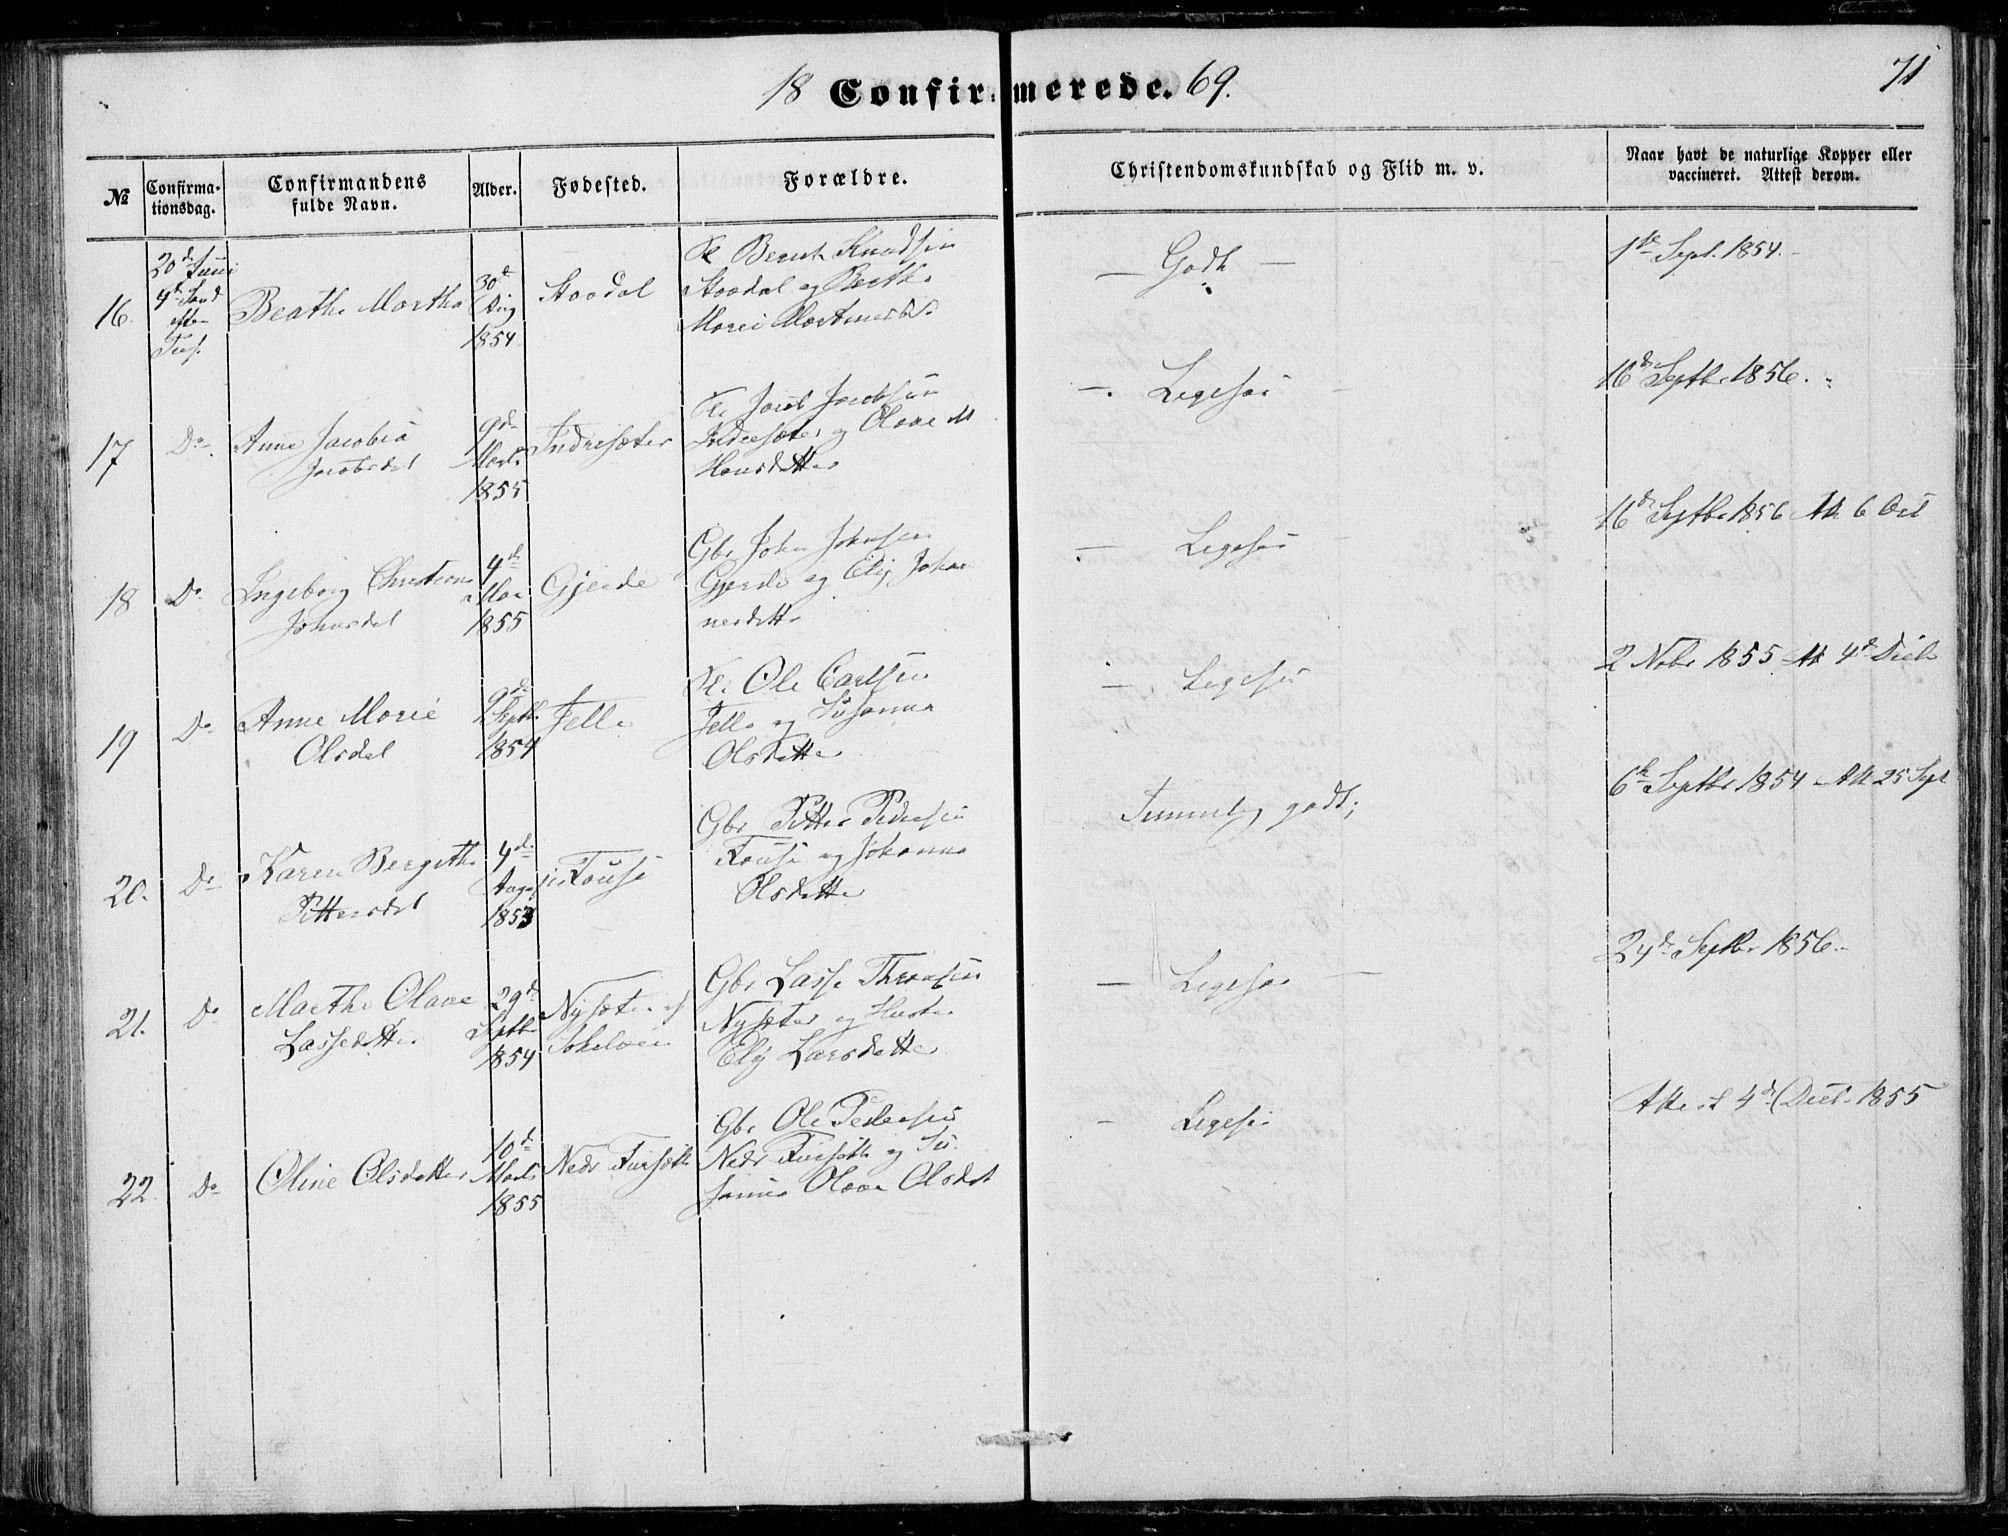 18 Confirmerede. 69.
71
№
Confirma-
tionsdag.
Confirmandens
fulde Navn.
Alder.
Fødested.
Forældre.
Christendomskundskab og Flid m. v.
Naar havt de naturlige Kopper eller
vaccineret. Attest derom.
16.
20de Juni
4de Sønd
efter
Beathe Martha
30te
Aug
1854
Staadal
Bernt Knudsen
Staadal og Berthe
Marie
— Godt —
1ste Sept. 1854.
17
Do
Anne Jacobia
Jacobsdat
9de
Marts
1855
Indresæter
Jacob Jacobsen
Indresæter og Olave M
Hansdatter
— Ligesaa
16de Septbr 1856.
18
Do
Ingeborg Christiane
Johnsdat
4de
Mar
1855
Gjerde
Gbr John Johnsen
Gjerde og Elij Johan
nesdatter
— Ligesaa
16de Septbr 1856 Att 6 Oct
19
Do
Anne Marie
Olsdat
9de
Septbr
1854
Jelle
Ole Carlsen
Jelle og Susanna
Olsdatter
— Ligesaa
2 Nobr 1855 Att 4de Decbr
20.
Do
Karen Bergithe
Pettersdat
4de
Aug
1853
Fouse
Gbr Petter Pedersen
Fouse og Johanna
Olsdatter
Temmelig godt;
6te Septbr 1854 Att 25 Sept
21.
Do
Marthe Olave
Lassedatter
29de
Septbr
1854
Nysæter
Gbr Lasse
Nysæter og Hustru
Elij Larsdatter
— Ligesaa —
24de Septbr 1856.
22.
Do
Oline Olsdatter
10de
Marts
1855
Nedr
Gbr Ole Pedersen
Nedr og Su
sanna Olave Olsdat
— Ligesaa
Attest 4de Decbr 1855